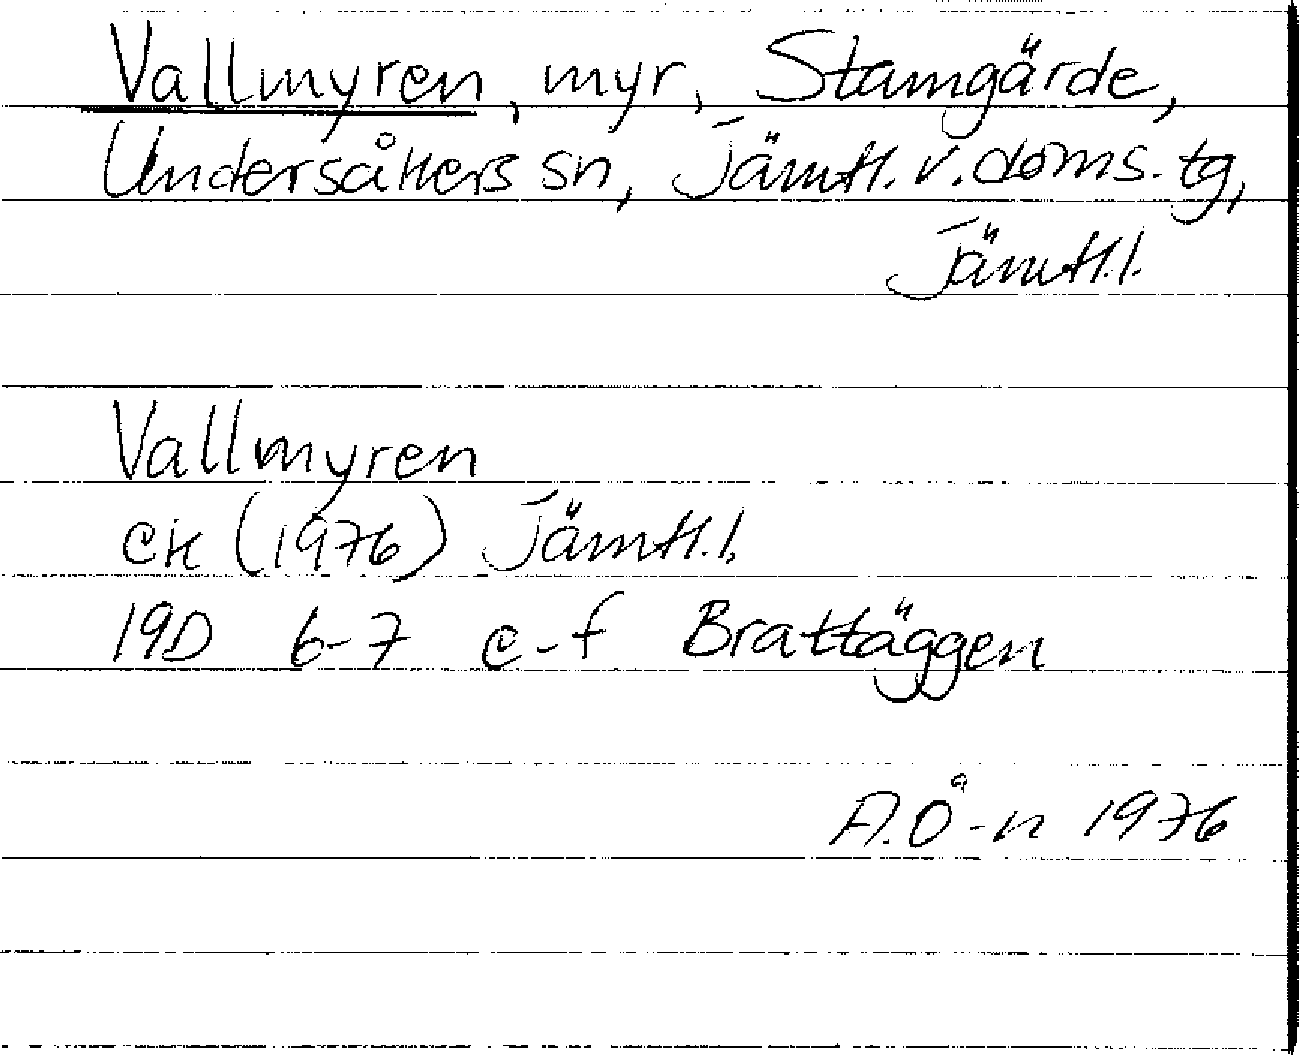 Vallmyren, myr, Stamgärde,
Undersåkers sn, Jämtl. v. doms. tg,
Jämtl.l.
Vallmyren
ek (1976) Jämtl.l.
19D 6-7 e-f Brattäggen
A.Ö-n 1976